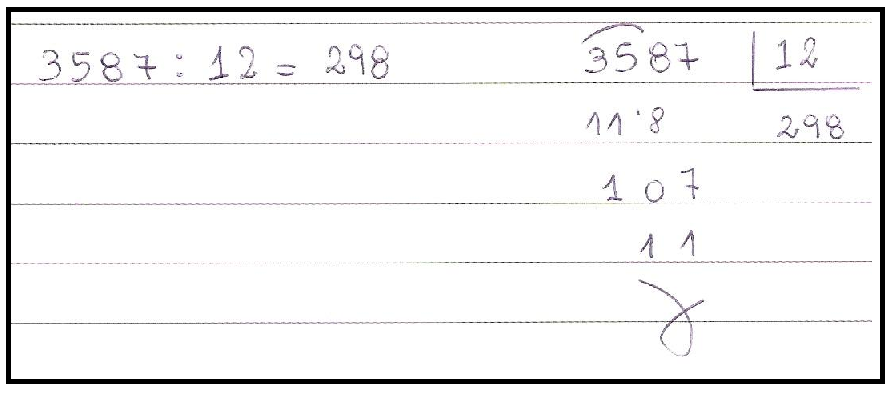 3587 : 12 = 298
3587 | 12
11'8 298
107
11